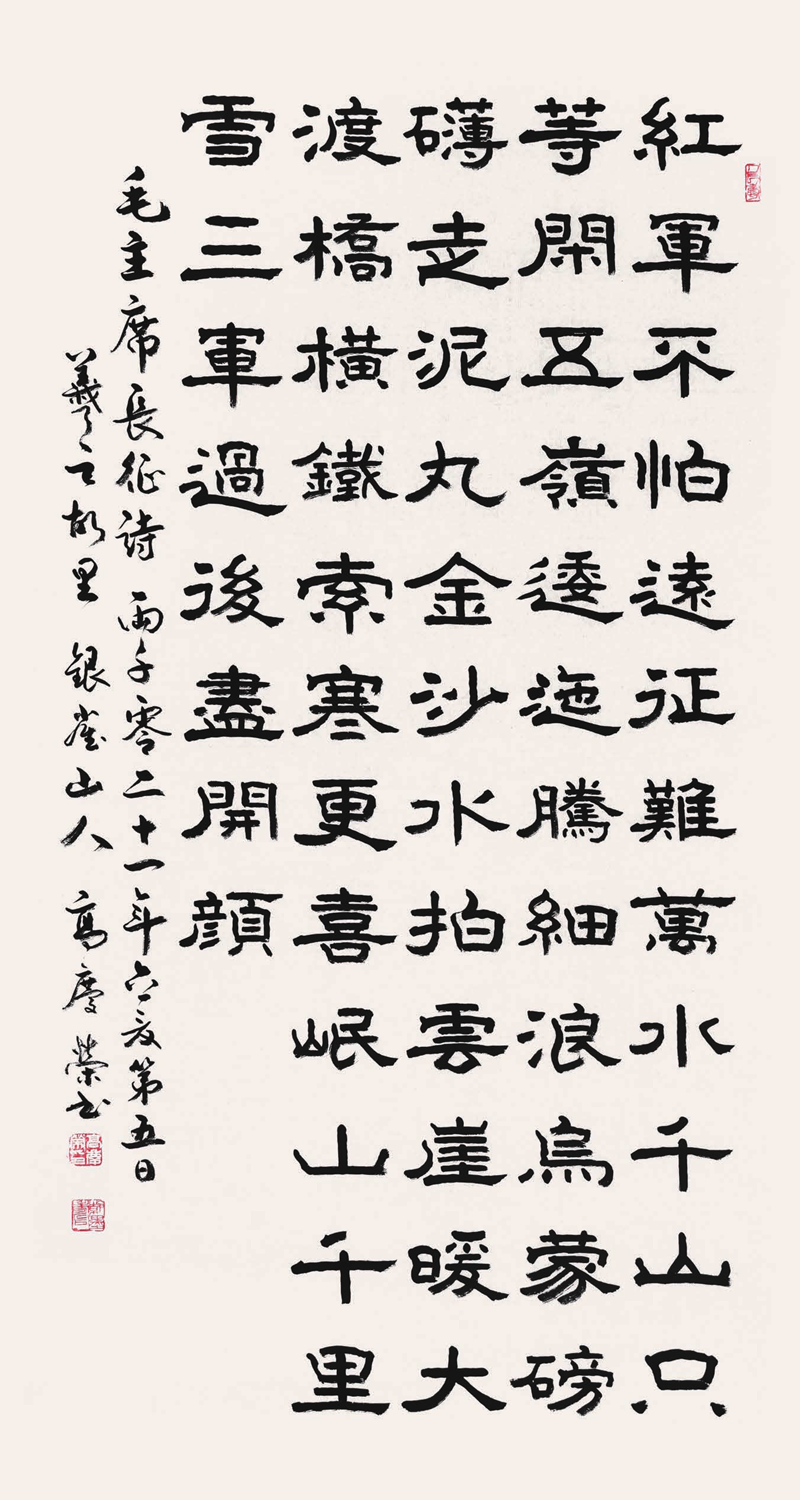 紅軍不怕遠征難萬水千山只
等閑五嶺逶迤騰細浪烏蒙磅
礴走泥丸金沙水拍雲崖暖大
渡橋橫鐵索寒更喜岷山千里
雪三軍過後盡開顏
毛主席長征詩 兩千零二十一年六月第五日
羲之故里 銀雀山人 高慶榮書